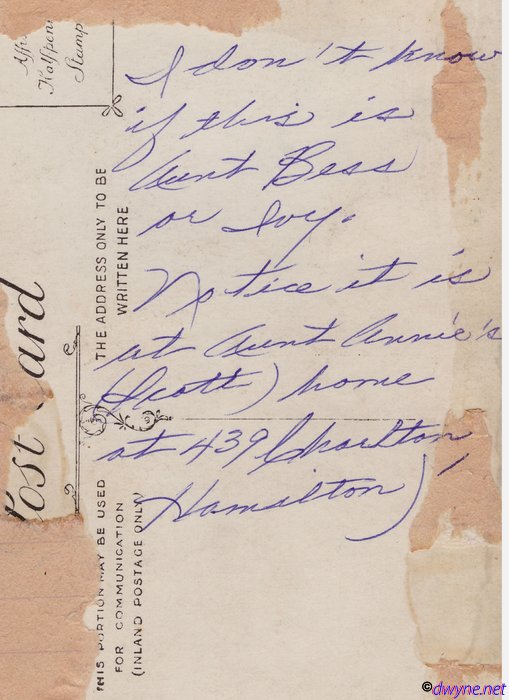 I don't know
if this is
Aunt Bess
or Ivy.
Notice it is
at Aunt Annie's
(Scott) home
at 439 Charlton,
Hamilton)
Affix
Halfpenny
Stamp
THE ADDRESS ONLY TO BE
WRITTEN HERE
Post Card
THIS PORTION MAY BE USED
FOR COMMUNICATION
(INLAND POSTAGE ONLY)
©dwyne.net